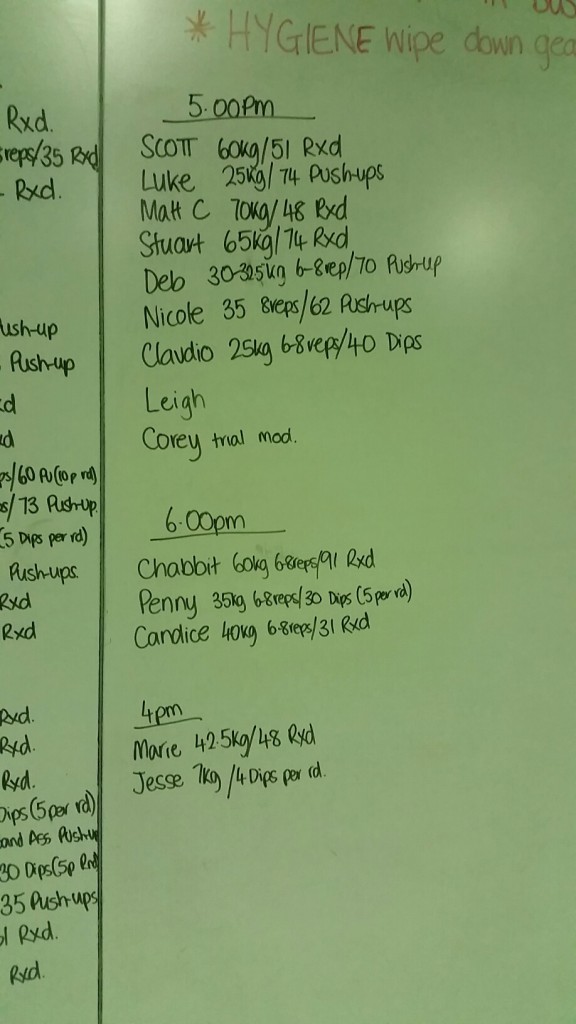 * HYGIENE wipe down gea
Rxd.
reps/35 Rxd
Rxd.
ush-up
Push-up
xd
xd
ps/60 PU(10 p rd)
ps/73 Push-up.
(5 Dips per rd)
Push-ups.
Rxd
Rxd
Rxd.
Rxd.
Rxd.
Dips (5 per rd)
and Ass Push-u
30 Dips(5p Rnd)
35 Push-ups
1 Rxd.
Rxd.
5.00pm
SCOTT 60kg/51 Rxd
Luke 25kg/74 Push-ups
Matt C 70kg/48 Rxd
Stuart 65kg/74 Rxd
Deb 30-32.5kg 6-8rep/70 Push-up
Nicole 35 8reps/62 Push-ups
Claudio 25kg 6-8reps/40 Dips
Leigh
Corey trial mod.
6.00pm
Chabbit 60kg 6-8reps/91 Rxd
Penny 35kg 6-8reps/30 Dips (5 per rd)
Candice 40kg 6-8reps/31 Rxd
4pm
Marie 42.5kg/48 Rxd
Jesse 7kg /4 Dips per rd.